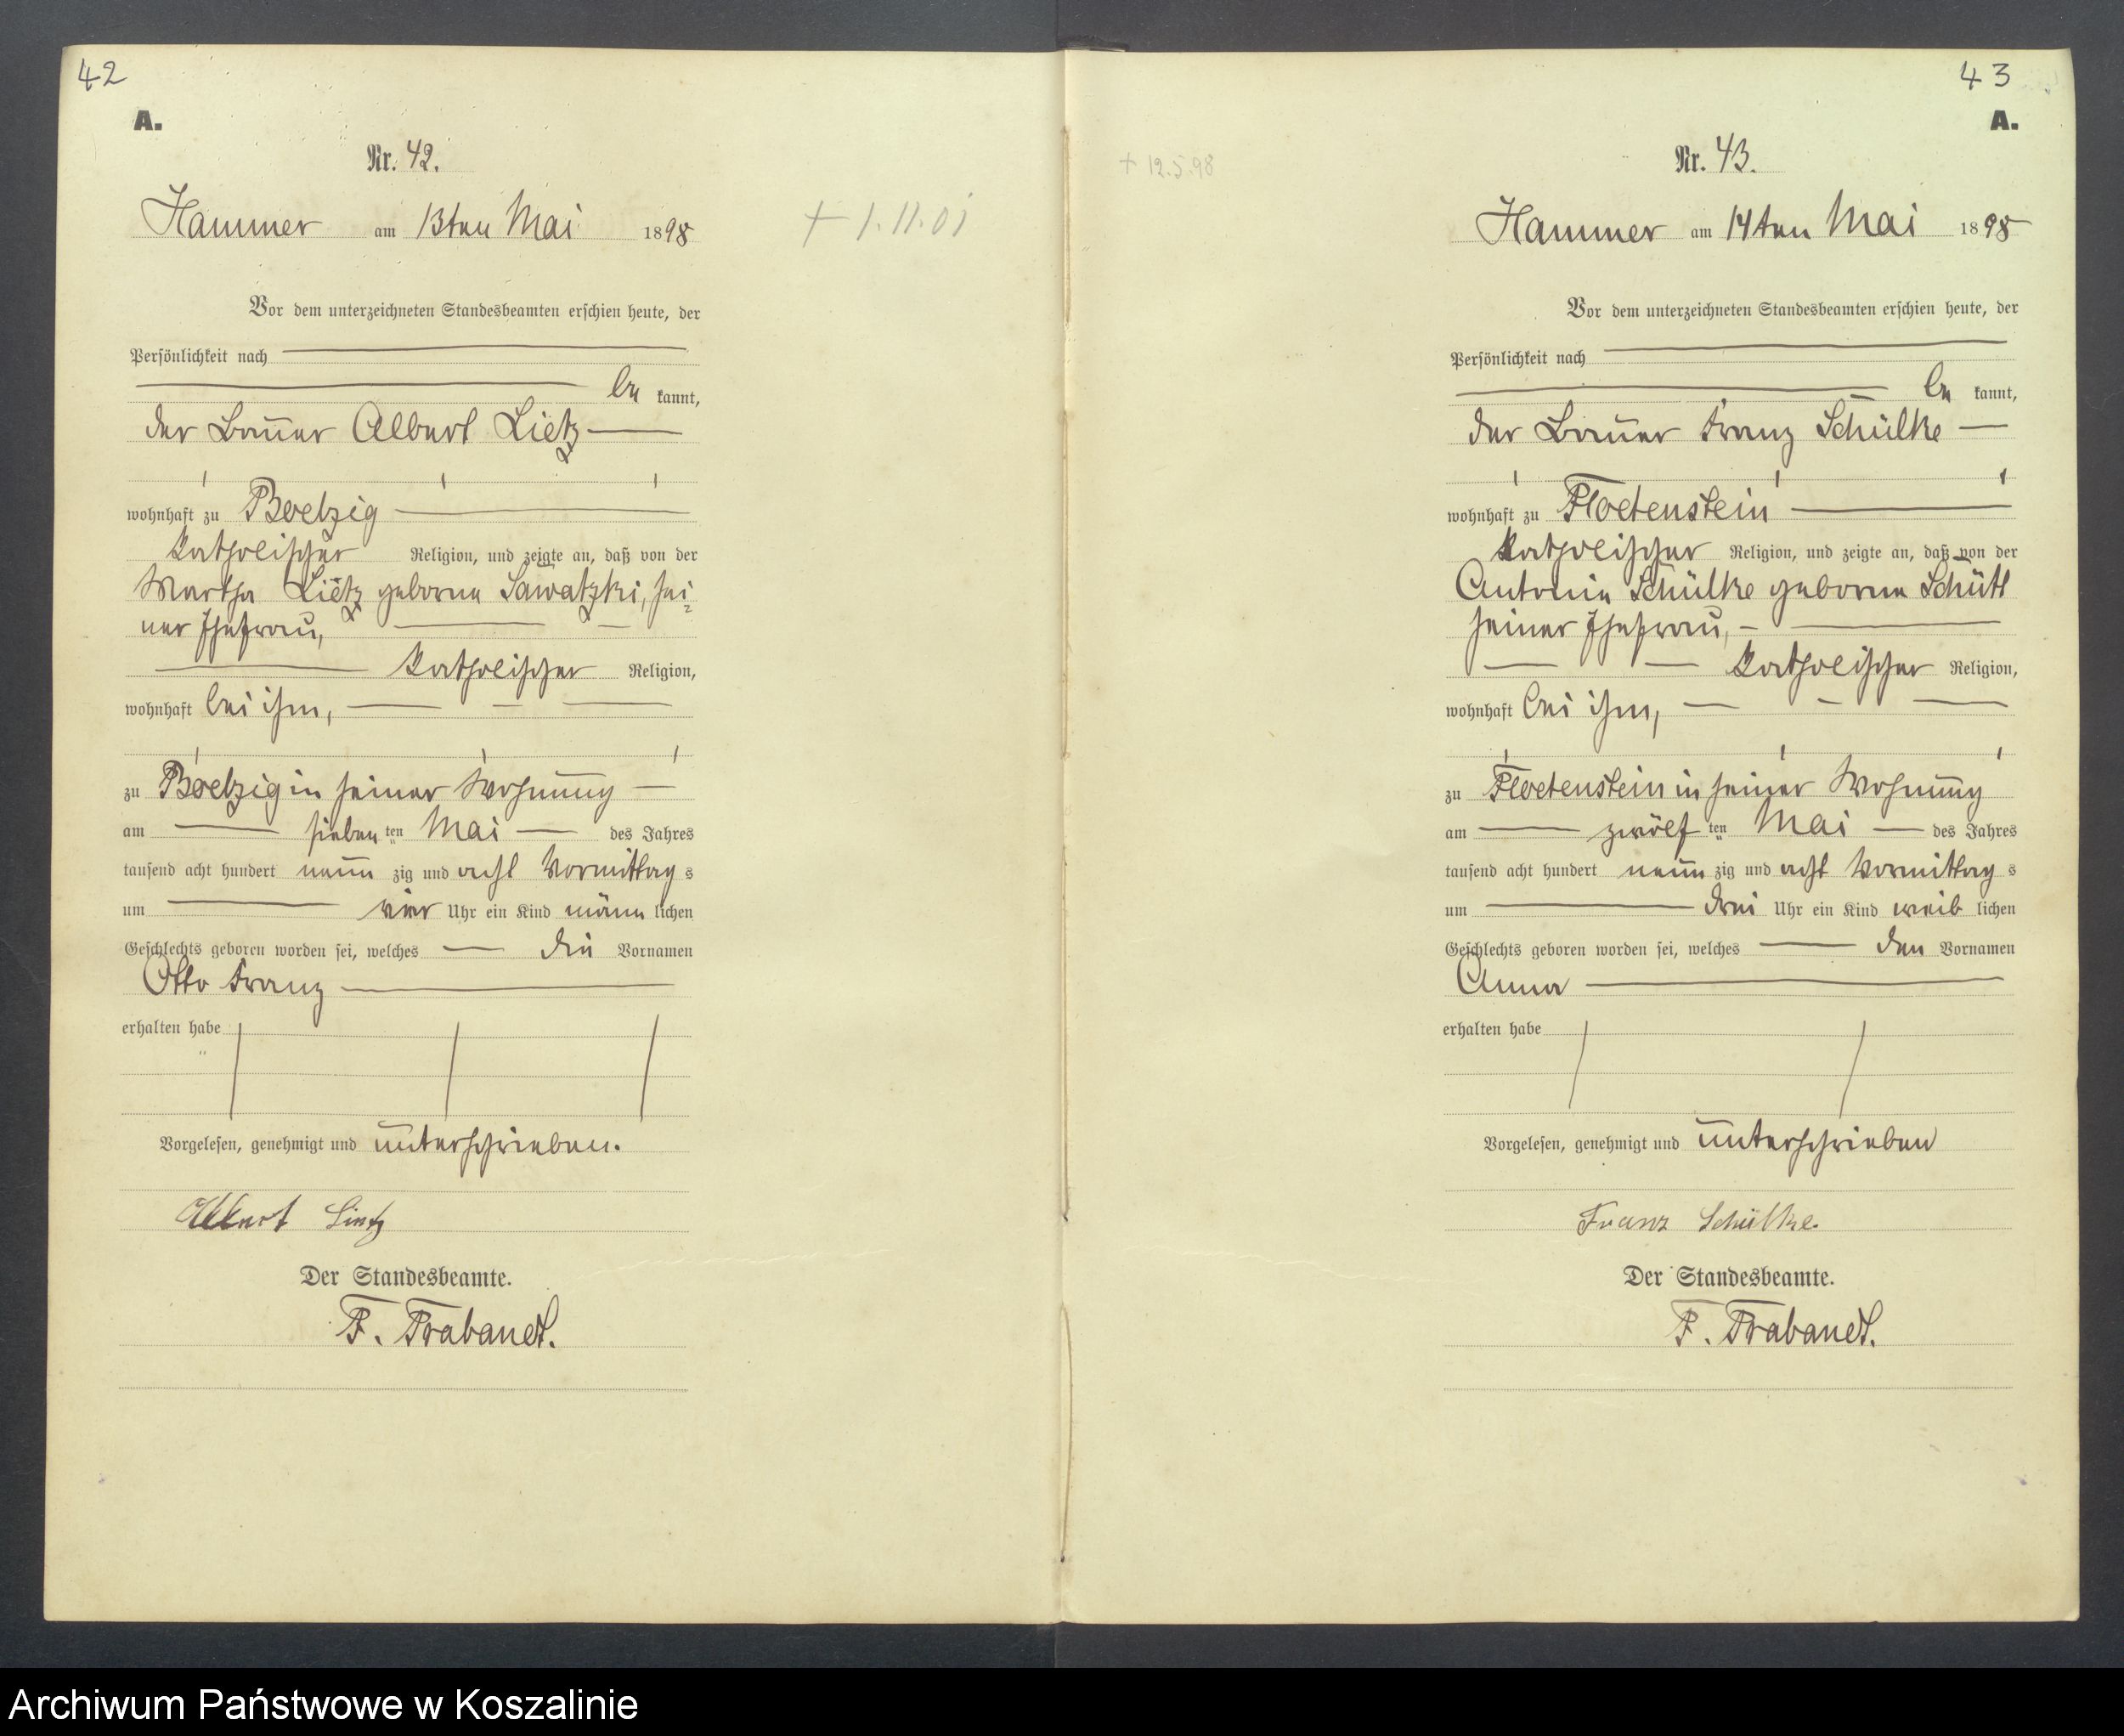 42
A.
Nr. 42.
Hammer am 13ten Mai 1898
+ 1.11.01
Vor dem unterzeichneten Standesbeamten erschien heute, der
Persönlichkeit nach
be kannt,
der Bauer Albert Lietz
wohnhaft zu Boelzig
katholischer Religion, und zeigte an, daß von der
Martha Lietz geborne Sawatzki, sei-
ner Ehefrau,
katholischer Religion,
wohnhaft bei ihm,
zu Boelzig in seiner Wohnung
am sieben ten Mai des Jahres
tausend acht hundert neun zig und acht Vormittag s
um vier Uhr ein Kind männ lichen
Geschlechts geboren worden sei, welches die Vornamen
Otto Franz
erhalten habe
Vorgelesen, genehmigt und unterschrieben.
Albert Lietz
Der Standesbeamte.
F. Trabandt.
43
A.
+ 12.5.98
Nr. 43.
Hammer am 14ten Mai 1898
Vor dem unterzeichneten Standesbeamten erschien heute, der
Persönlichkeit nach
be kannt,
der Bauer Franz Schülke
wohnhaft zu Floetenstein
katholischer Religion, und zeigte an, daß von der
Antonie Schülke geborne Schütt
seiner Ehefrau,
katholischer Religion,
wohnhaft bei ihm,
zu Floetenstein in seiner Wohnung
am zwölf ten Mai des Jahres
tausend acht hundert neun zig und acht Vormittag s
um drei Uhr ein Kind weib lichen
Geschlechts geboren worden sei, welches den Vornamen
Anna
erhalten habe
Vorgelesen, genehmigt und unterschrieben
Franz Schülke.
Der Standesbeamte.
F. Trabandt.
Archiwum Państwowe w Koszalinie